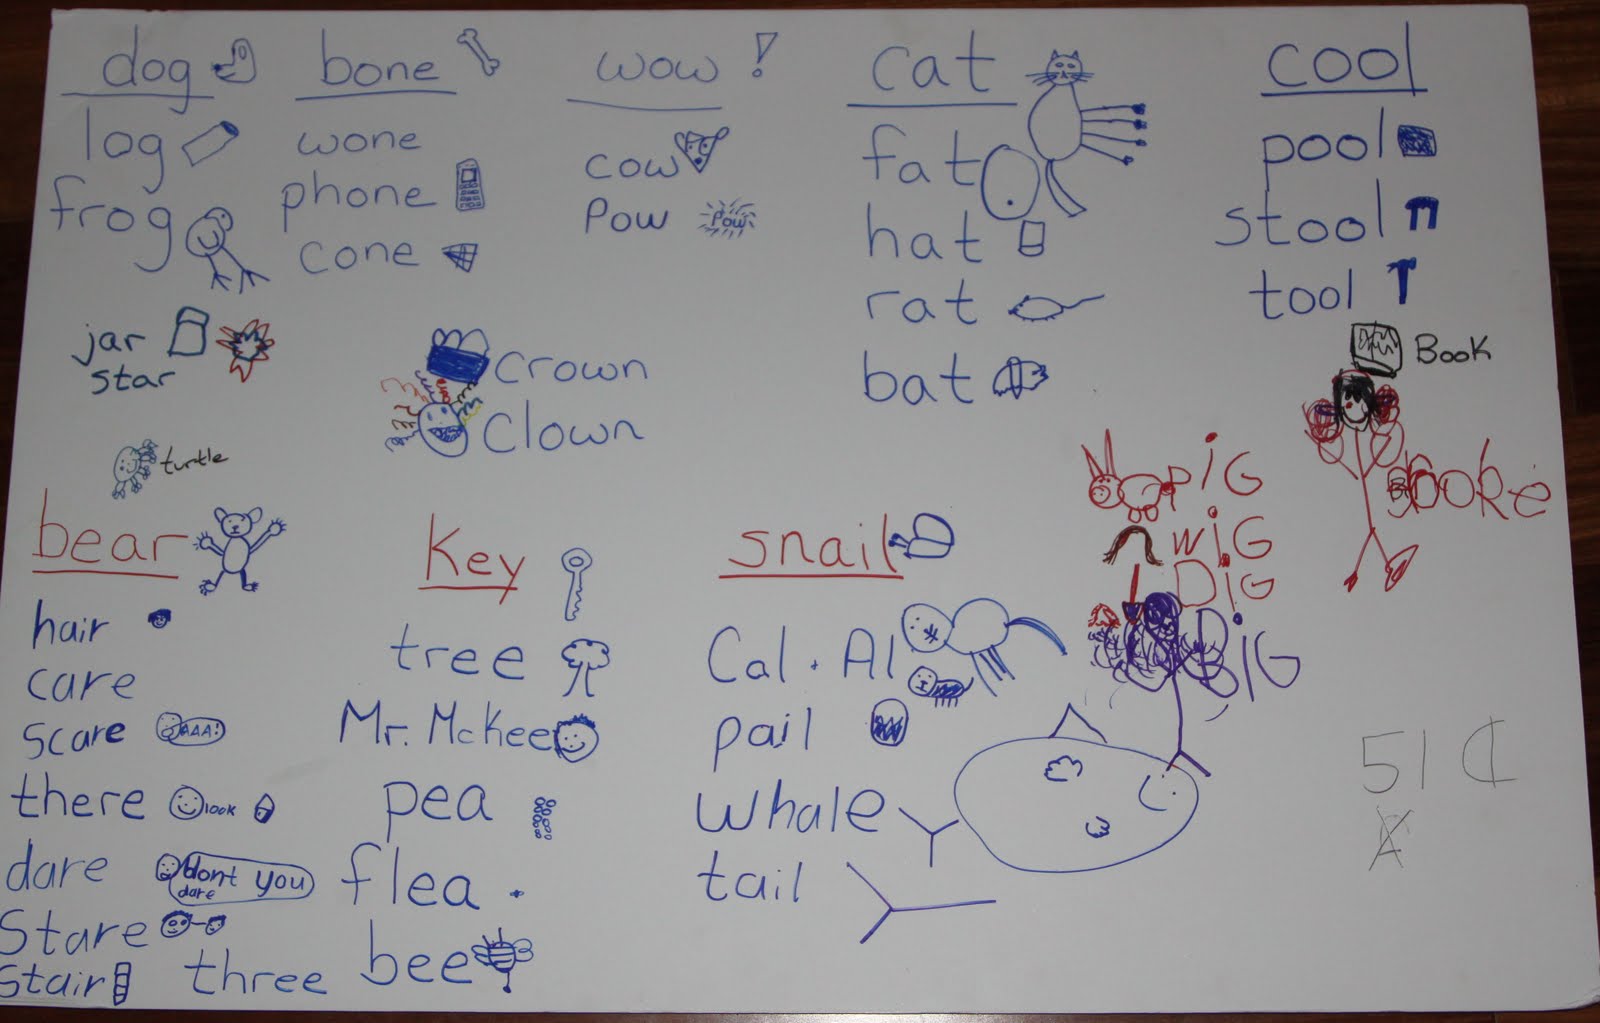 dog
log
frog
bone
wone
phone
cone
wow!
cow
Pow
Pow
cat
fat
hat
rat
bat
cool
pool
stool
tool
jar
star
Crown
Clown
Book
turtle
PiG
WiG
DiG
BiG
bear
hair
care
scare
AAA!
there
look
dare
dont you
dare
Stare
Stair
three
Key
tree
Mr. McKee
pea
flea
bee
snail
Cal. Al
pail
whale
tail
51 ₵